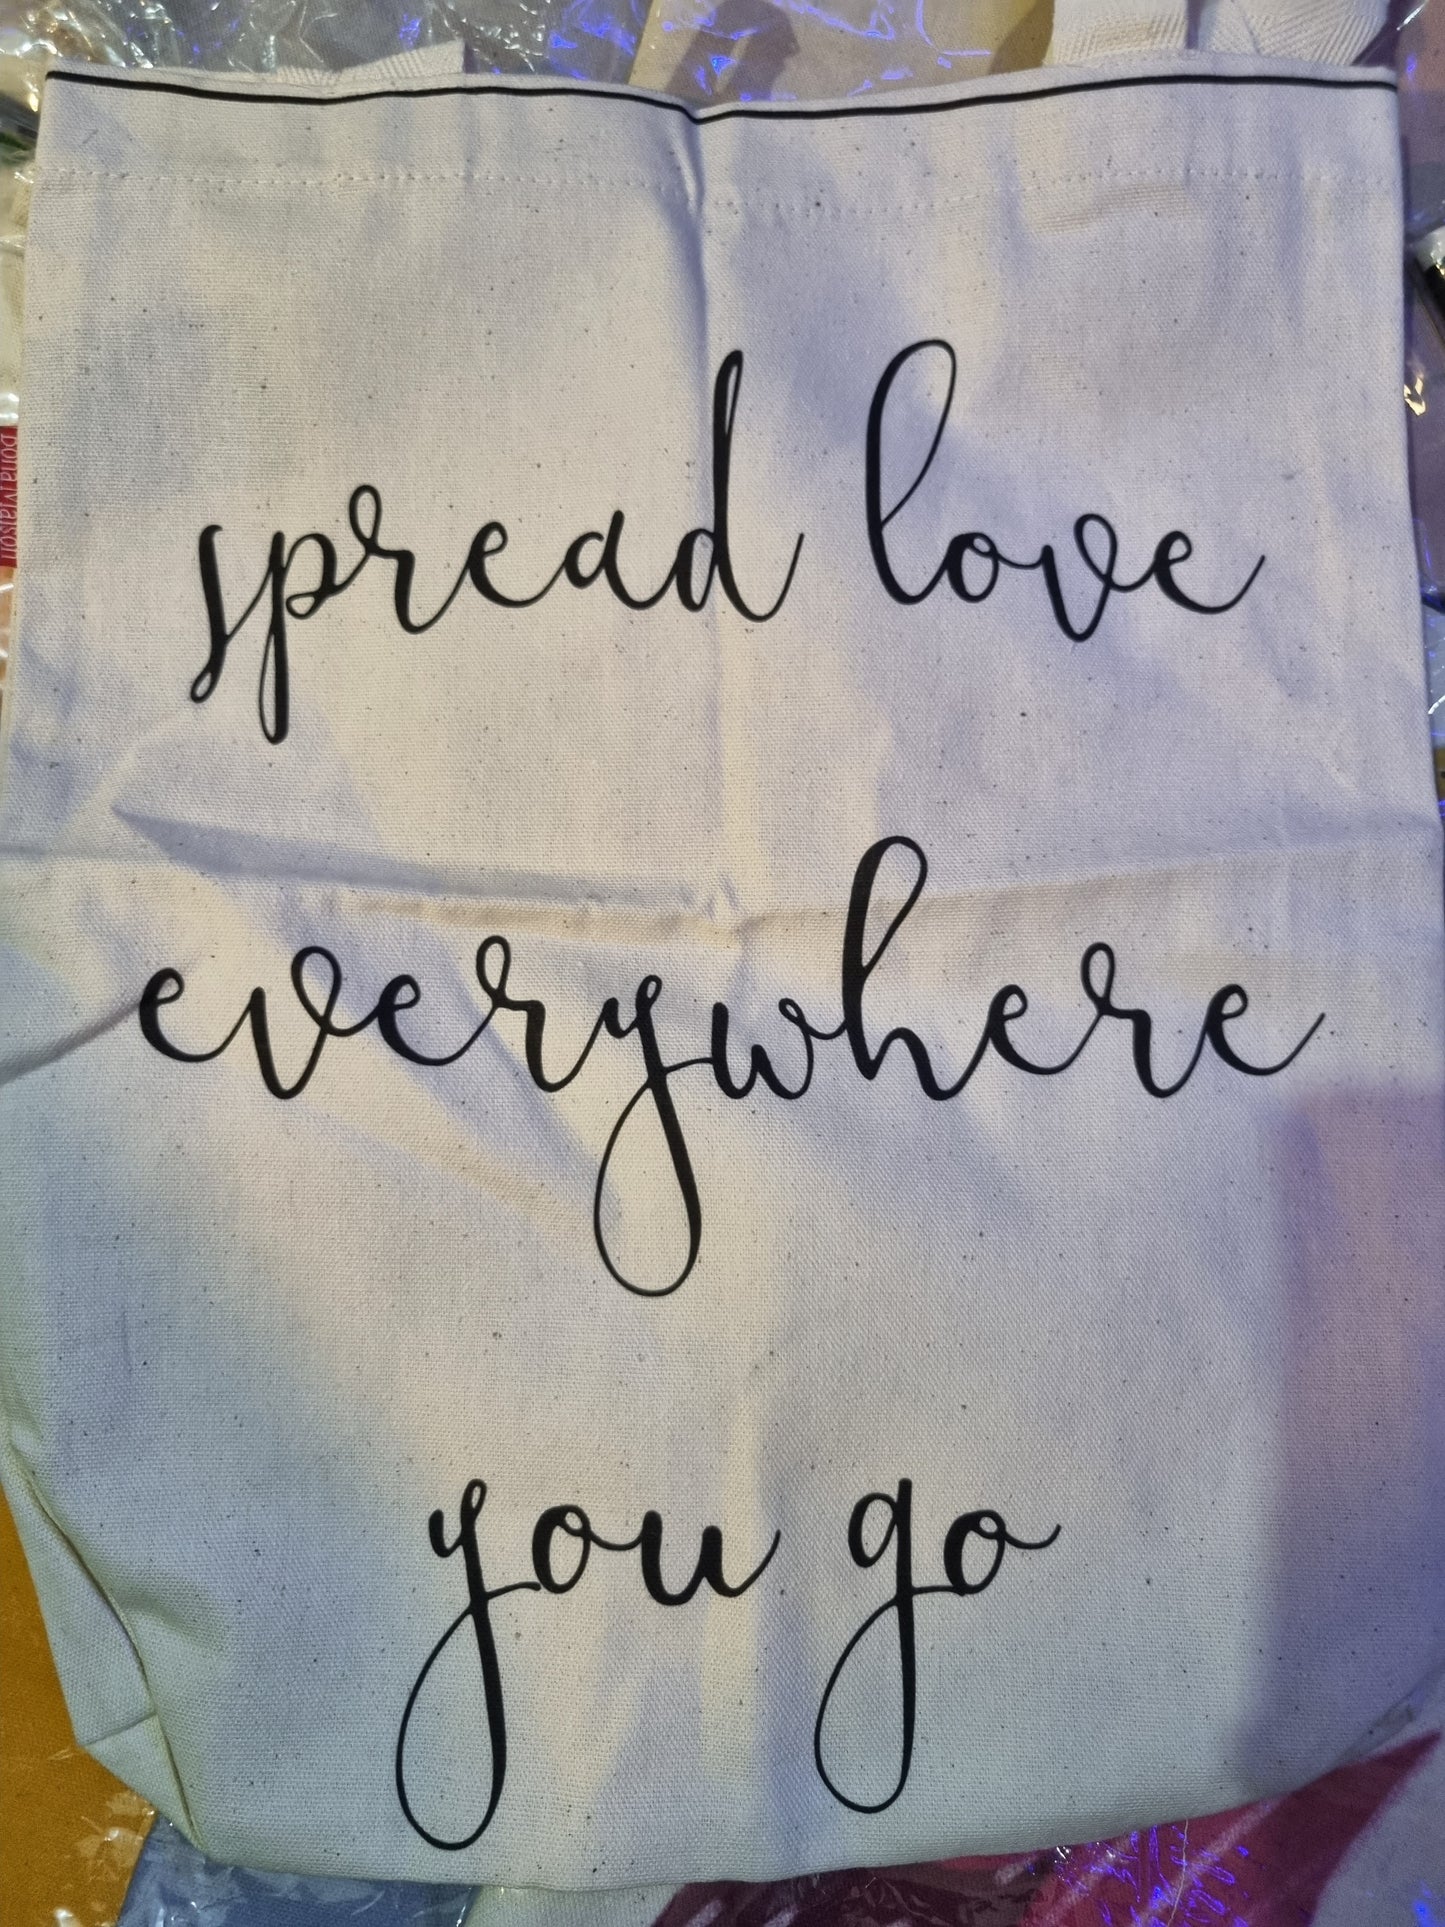 spread love
everywhere
you go